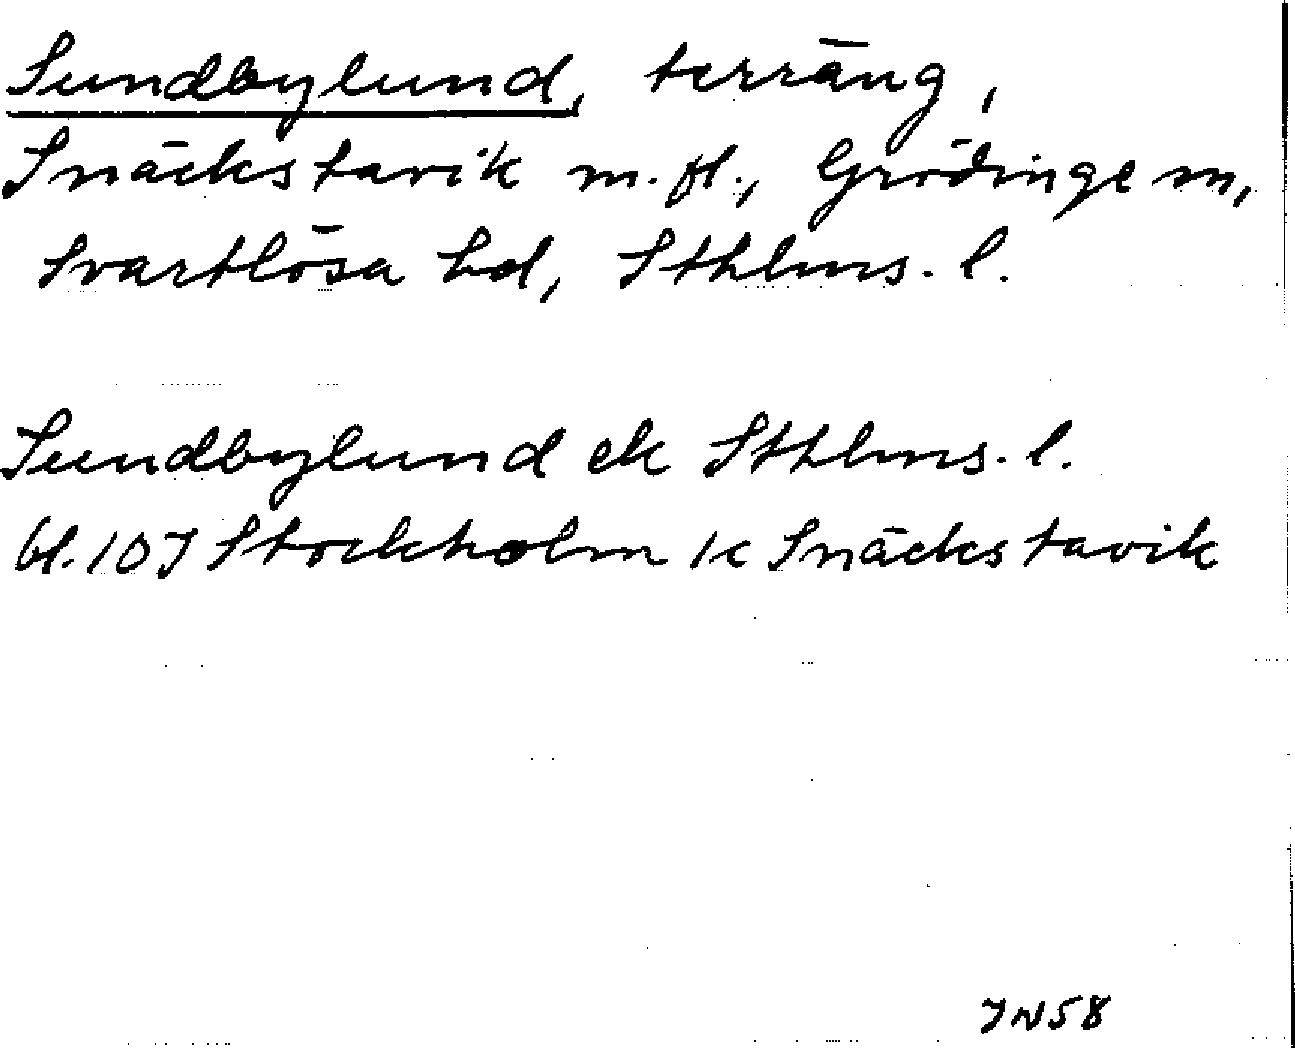 Sundbylund, terräng,
Snäckstavik m.fl., Grödinge sn,
Svartlösa hd, Sthlms. l.
Sundbylund ek Sthlms. l.
bl. 10J Stockholm 1c Snäckstavik
JN58